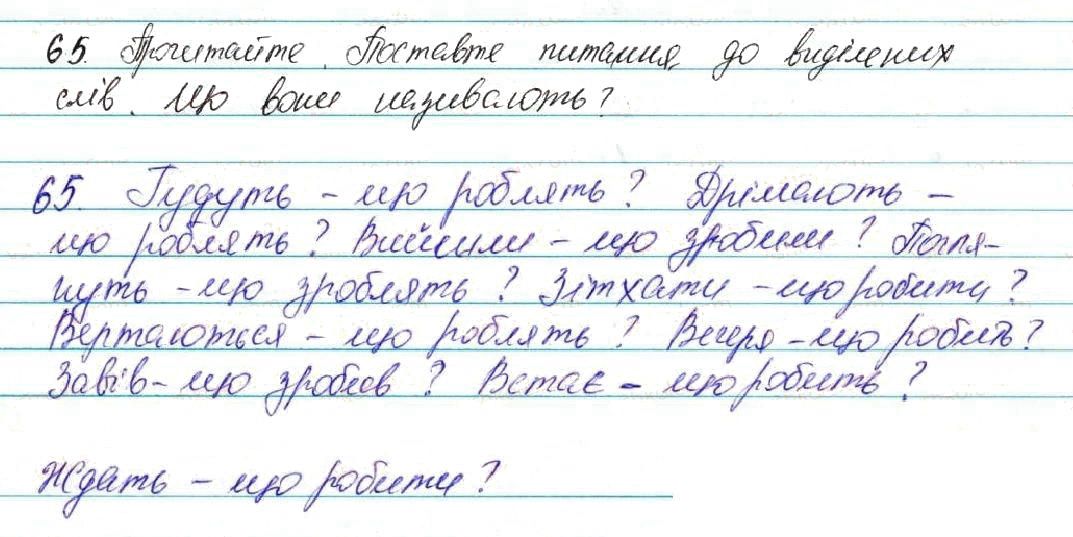 65. Прочитайте. Поставте питання до виділених
слів. Що вони називають?
65. Гудуть - що роблять? Дрімають -
що роблять? Вийшли - що зробили? Погля-
нуть - що зроблять? Зітхати - що робити?
Вертаються - що роблять? Вечеря - що робить?
Завів - що зробив? Встає - що робить?
Ждать - що робити?